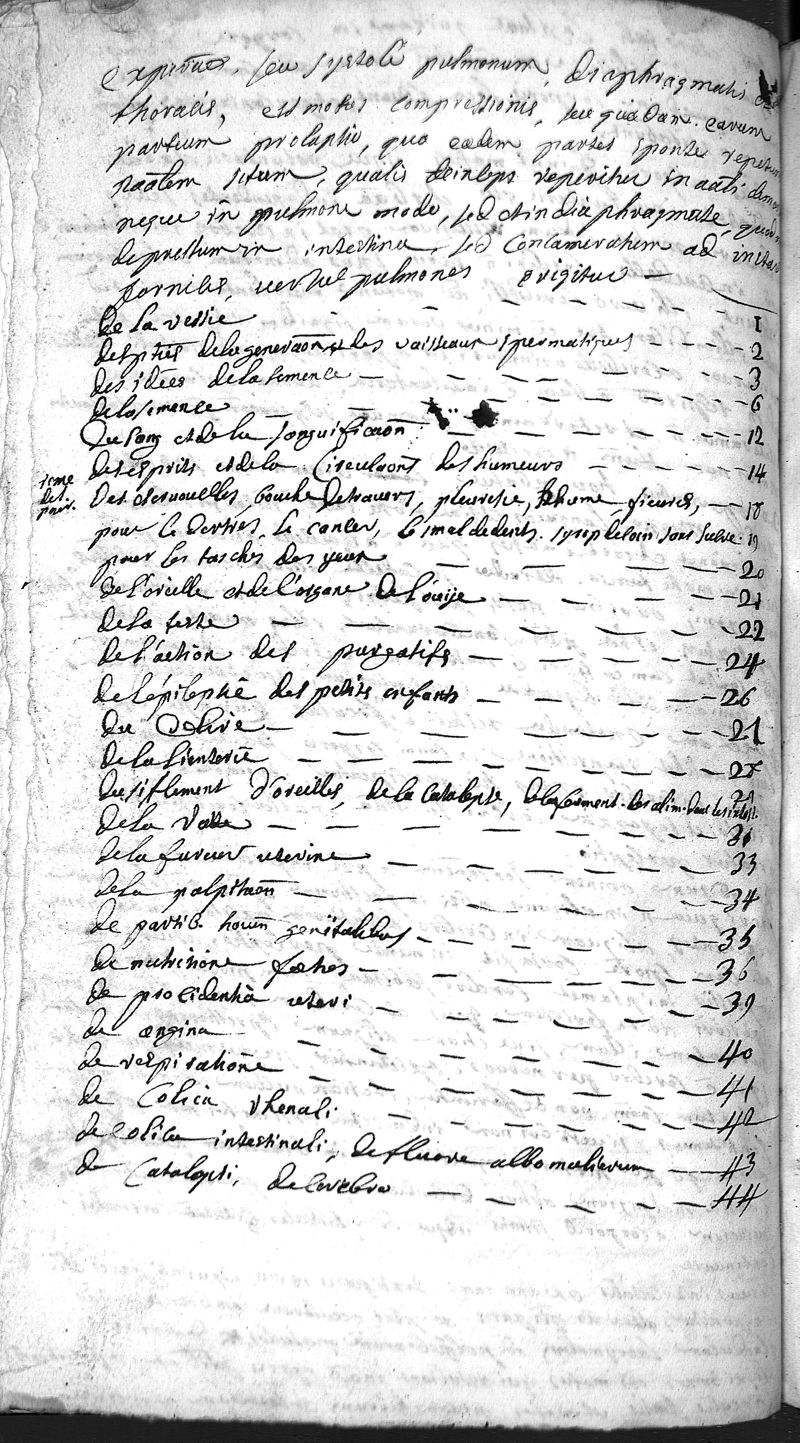 seu systole pulmonum, diaphragmatis
thoracis, est motus compressionis, seu quædam earum
partium prolapsio, quo eædem partes sponte
situm, qualis deinceps reperitur in
neque in pulmone modo, sed et in diaphragmate, quod
depressum in intestina sed concameratum ad instar
fornicis, versus pulmones erigitur —
De la vessie 1
des ptiēs de la generaōn et des vaisseaux spermatiques 2
des idées de la semence 3
de la semence 6
Du sang et de la sanguificaōn 12
des esprits et de la circulaōn des humeurs 14
Des escrouelles, bouche de travers, pleuresie, Rhume, fieures, 18
pour le dertres, le cancer, le mal de dents. 19
pour les tasches des yeux 20
de l'oreille et de l'organe de l'ouije 21
de la teste 22
de l'action des purgatifs 24
de l'epilepsie des petits enfants 26
du Delire 27
de la lienterie 28
du siflement d'oreilles, de la catalepse, de la ferment. des alim. dans les intest. 29
de la Rate 31
de la fureur uterine 33
de la palpitaōn 34
de partib. hoium genitalibus 35
de nutritione fœtus 36
de procidentia uteri 39
de angina 40
de respiratione 41
de Colica rhenali 42
de colica intestinali, de fluore albo mulierum 43
de Catalepsi, de Cerebro 44